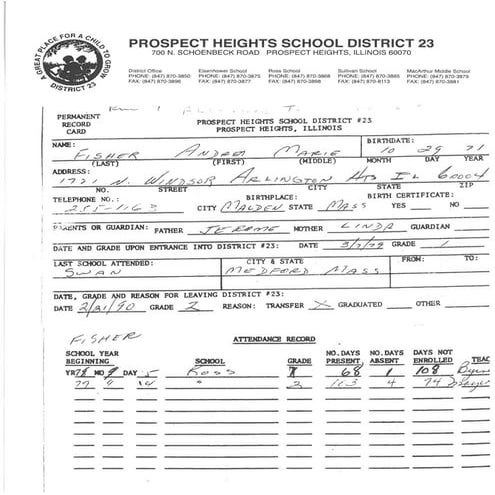 A GREAT PLACE FOR A CHILD TO GROW
DISTRICT 23
PROSPECT HEIGHTS SCHOOL DISTRICT 23
700 N. SCHOENBECK ROAD PROSPECT HEIGHTS, ILLINOIS 60070
District Office Eisenhower School Ross School Sullivan School MacArthur Middle School
PHONE: (847) 870-3850 PHONE: (847) 870-3875 PHONE: (847) 870-3868 PHONE: (847) 870-3865 PHONE: (847) 870-3879
FAX: (847) 870-3896 FAX: (847) 870-3877 FAX: (847) 870-3881
PERMANENT RECORD CARD
PROSPECT HEIGHTS SCHOOL DISTRICT #23
PROSPECT HEIGHTS, ILLINOIS
NAME: BIRTHDATE:
FISHER ANDREA MARIE 10 29 71
(LAST) (FIRST) (MIDDLE) MONTH DAY YEAR
ADDRESS:
1721 N. WINDSOR ARLINGTON HTS IL 60004
NO. STREET CITY STATE ZIP
TELEPHONE NO.: BIRTHPLACE: BIRTH CERTIFICATE:
255-1163 CITY MALDEN STATE MASS YES NO
PARENTS OR GUARDIAN: FATHER JEROME MOTHER LINDA GUARDIAN
DATE AND GRADE UPON ENTRANCE INTO DISTRICT #23: DATE 3/7/79 GRADE 1
LAST SCHOOL ATTENDED: CITY & STATE FROM: TO:
SWAN MEDFORD MASS
DATE, GRADE AND REASON FOR LEAVING DISTRICT #23:
DATE 2/21/90 GRADE 2 REASON: TRANSFER X GRADUATED OTHER
FISHER ATTENDANCE RECORD
SCHOOL YEAR NO. DAYS NO. DAYS DAYS NOT
BEGINNING SCHOOL GRADE PRESENT ABSENT ENROLLED
YR 78 MO 9 DAY 5 ROSS 1 68 1 108
79 9 " 2 103 4 74